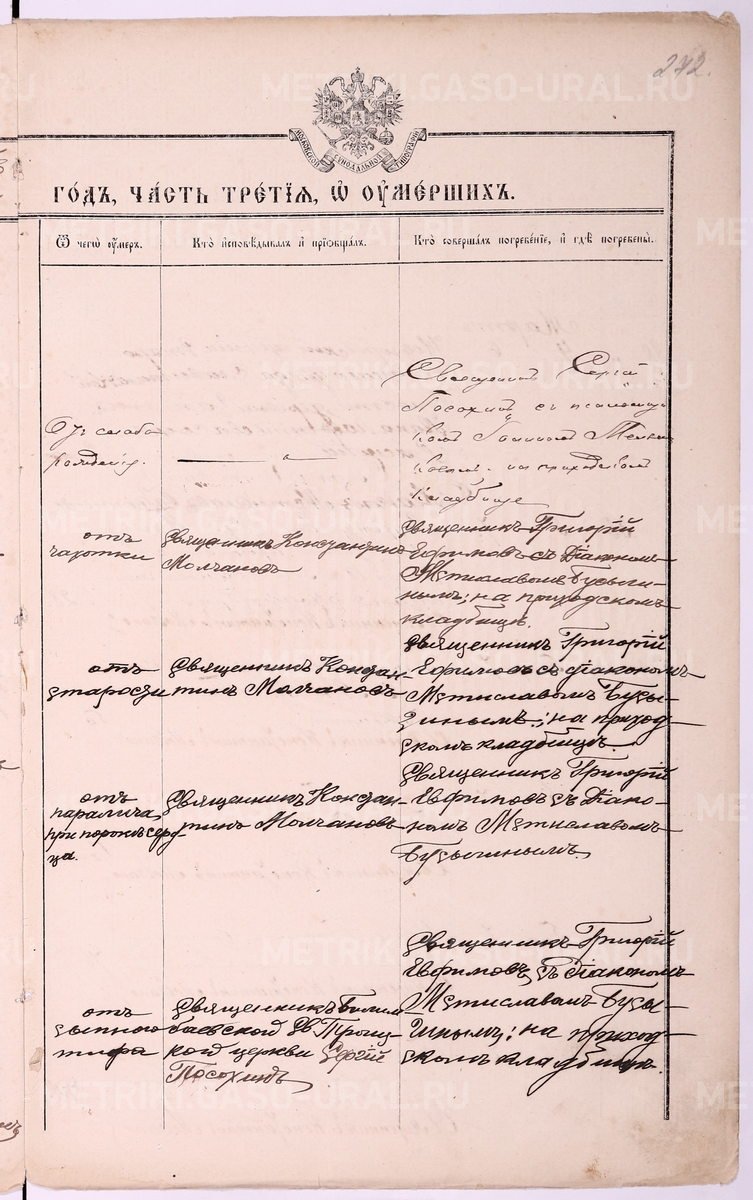 272.
МОСКОВСКОЙ СИНОДАЛЬНОЙ ТИПОГРАФІИ
ГО́ДЪ, ЧА́СТЬ ТРЕ́ТЇѦ, Ѡ҆ ОУ҆МЕ́РШИХЪ.
Ѿ чегѡ̀ оу҆́меръ.
Кто̀ и҆сповѣ́дывалъ и҆ прїѡбща́лъ.
Кто̀ соверша́лъ погребе́нїе, и҆ гдѣ̀ погребены̀.
Отъ слабо
рожденія.
Священникъ Сергій
Посохинъ съ псаломщи
комъ
на приходскомъ
кладбище
отъ
чахотки
Священникъ Константинъ
Молчановъ
Священникъ Григорій
Ефимовъ съ діакономъ
Мстиславомъ Бусыги-
нымъ; на приходскомъ
кладбищѣ.
отъ
старости
Священникъ Констан-
тинъ Молчановъ
Священникъ Григорій
Ефимовъ съ діакономъ
Мстиславомъ Бусы-
гинымъ; на приход-
скомъ кладбищѣ.
отъ
паралича,
при порокѣ серд-
ца.
Священникъ Констан-
тинъ Молчановъ
Священникъ Григорій
Евфимовъ съ діако-
номъ Мстиславомъ
Бусыгинымъ.
отъ
сыпного
тифа
Священникъ Билим-
баевской Св. Троиц-
кой церкви Сергій
Посохинъ
Священникъ Григорій
Евфимовъ, съ діакономъ
Мстиславомъ Бусы-
гинымъ; на приход-
скомъ кладбищѣ.
METRIKI.GASO-URAL.RU